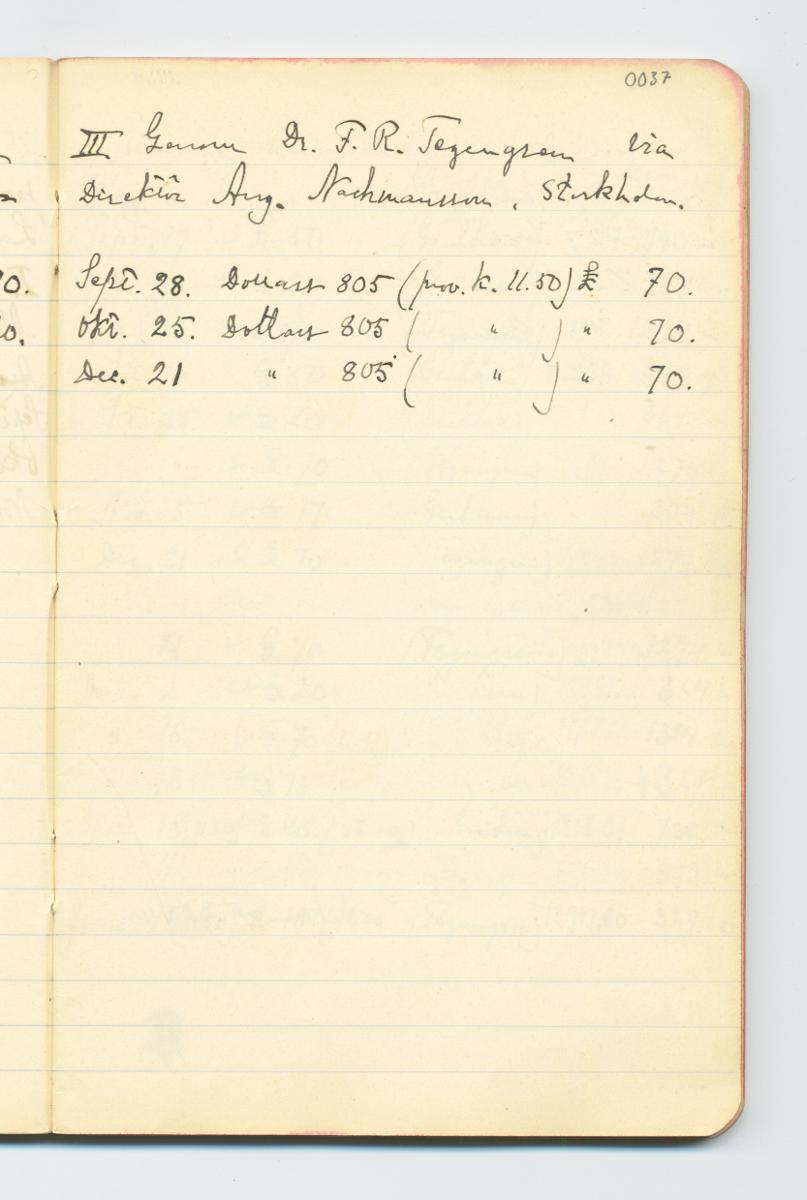 0037
III Genom Dr. F. R. Tegengren via
Direktör Aug. Nachmansson, Stockholm.
0. Sept. 28. Dollars 805 (prov. k. 11.50) £ 70.
0. Okt. 25. Dollars 805 ( " ) " 70.
Dec. 21 " 805 ( " ) " 70.